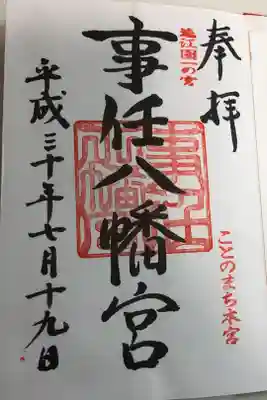 奉拝
遠江國一の宮
ことのまち本宮
事任八幡宮
平成三十年七月十九日